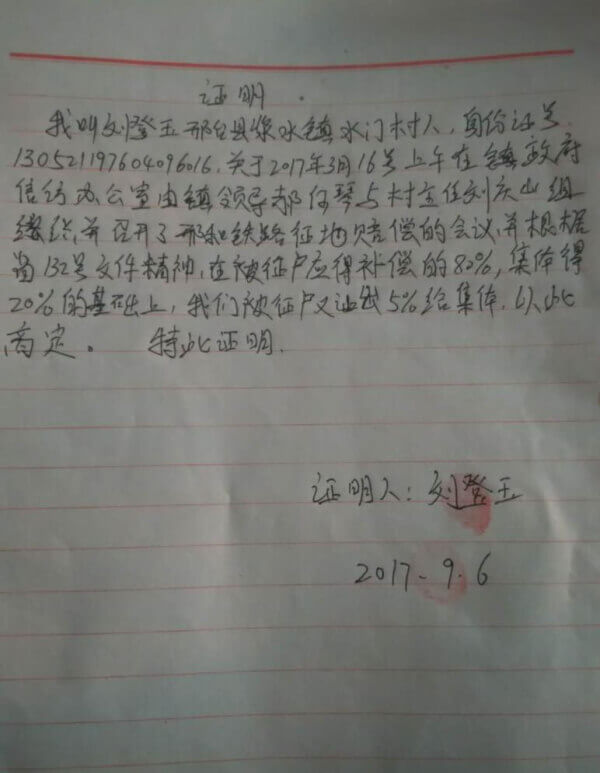 证明.
我叫刘登玉邢台县浆水镇水门村人,身份证号
130521197604096016.关于2017年3月16号上午在镇政府
信访办公室由镇领导郝何琴与村主任刘庆山组
织,并召开了邢和铁路征地赔偿的会议,并根据
省132号文件精神,在被征户应得补偿的80%,集体得
20%的基础上,我们被征户又让出5%给集体.以此
商定。 特此证明.
证明人:刘登玉
2017.9.6